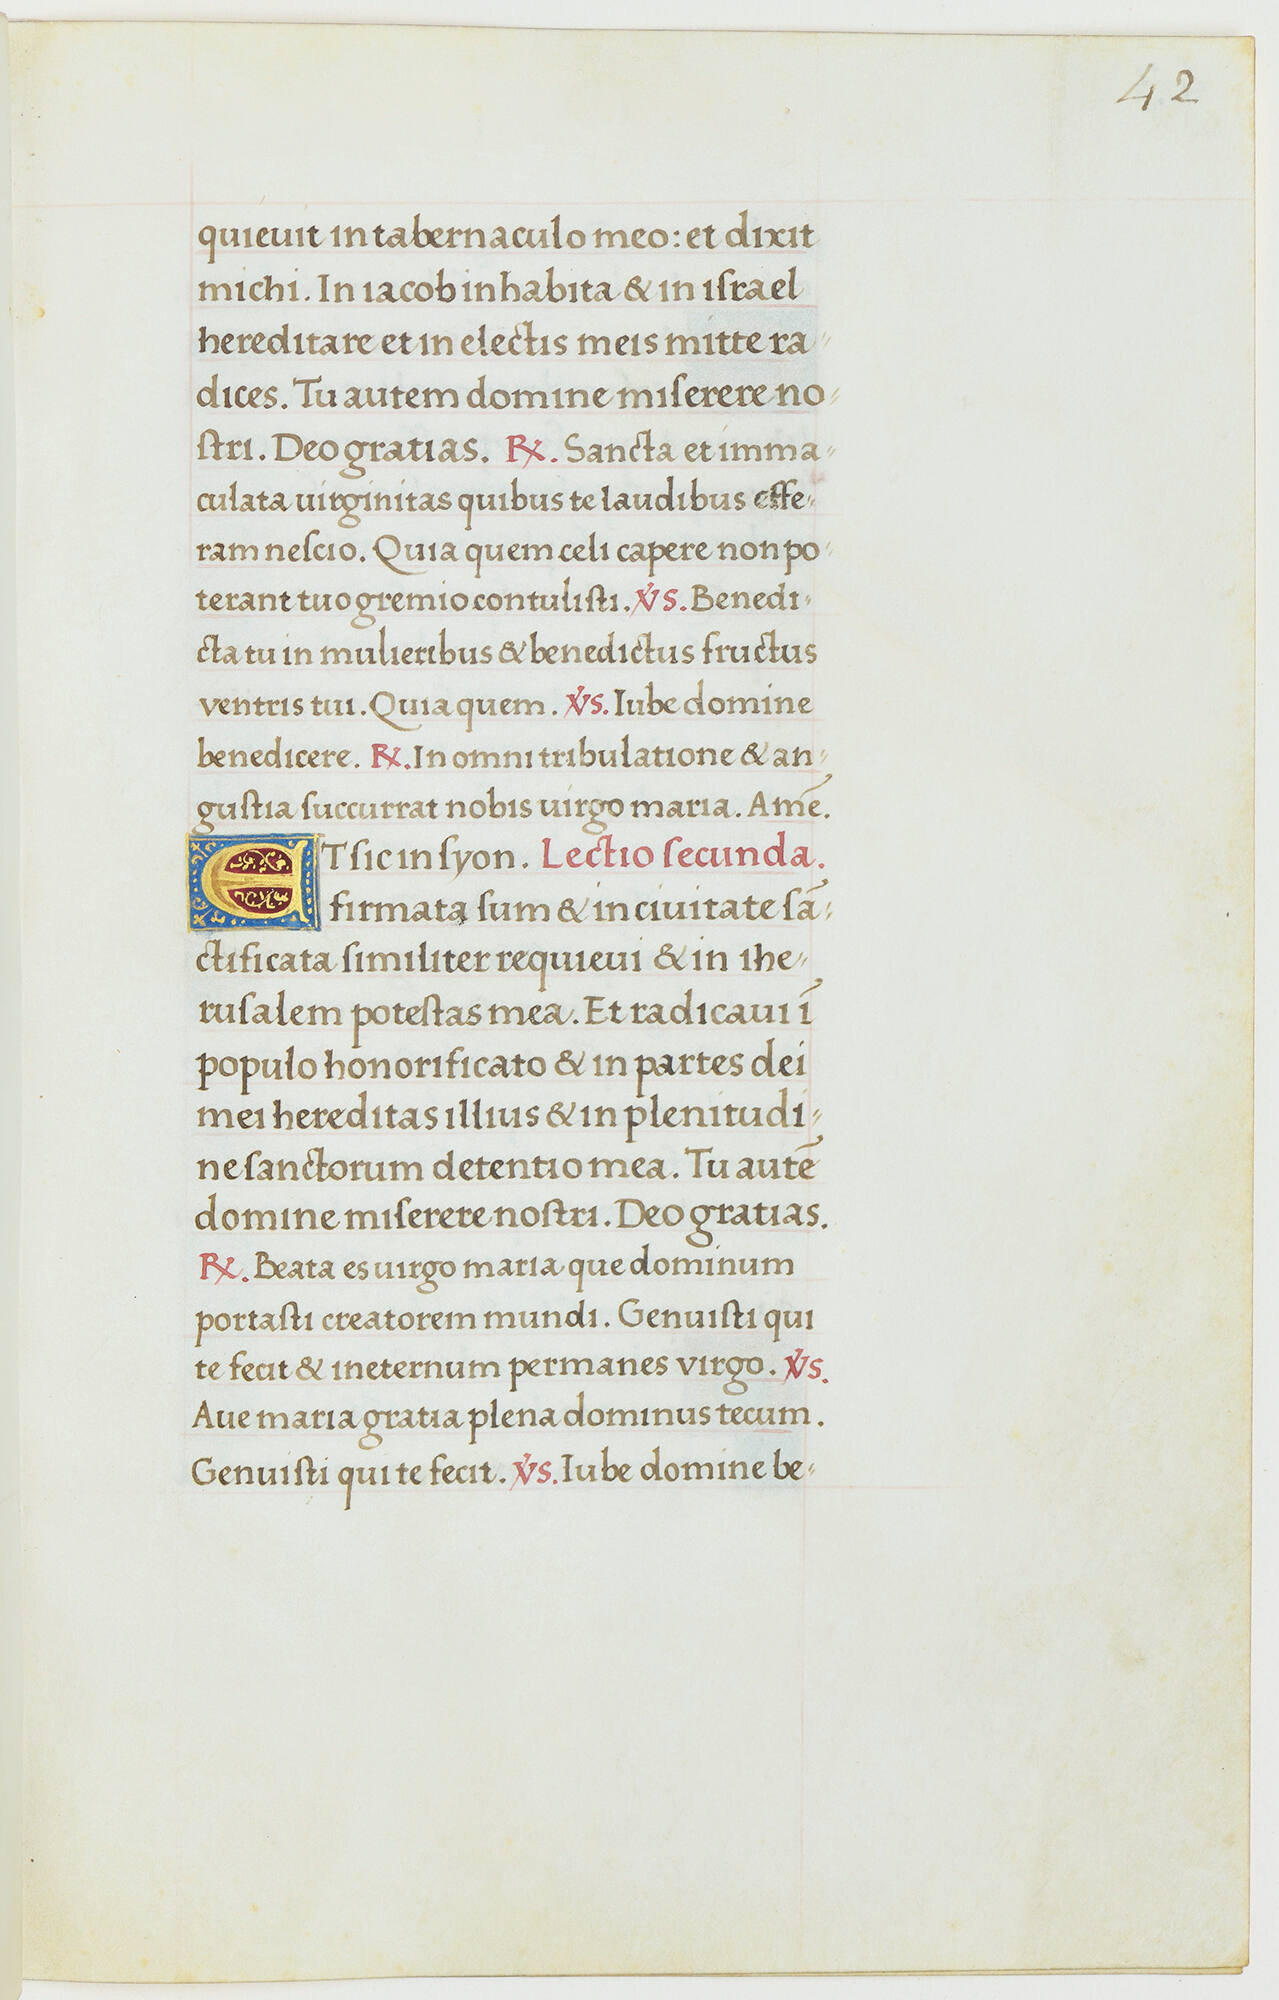 42
quieuit in tabernaculo meo: et dixit
michi. In iacob inhabita & in iſrael
hereditare et in electis meis mitte ra-
dices. Tu autem domine miſerere no-
ſtri. Deo gratias. ℟. Sancta et imma-
culata uirginitas quibus te laudibus effe-
ram neſcio. Quia quem celi capere non po-
terant tuo gremio contuliſti. ℣s. Benedi-
cta tu in mulieribus & benedictus fructus
ventris tui. Quia quem. ℣s. Iube domine
benedicere. ℟. In omni tribulatione & an-
guſtia ſuccurrat nobis uirgo maria. Amē.
ET ſic in ſyon. Lectio ſecunda.
firmata ſum & in ciuitate ſā-
ctificata ſimiliter requieui & in ihe-
ruſalem poteſtas mea. Et radicaui ī
populo honorificato & in partes dei
mei hereditas illius & in plenitudi-
ne ſanctorum detentio mea. Tu autē
domine miſerere noſtri. Deo gratias.
℟. Beata es uirgo maria que dominum
portaſti creatorem mundi. Genuiſti qui
te fecit & in eternum permanes virgo. ℣s.
Aue maria gratia plena dominus tecum.
Genuiſti qui te fecit. ℣s. Iube domine be-